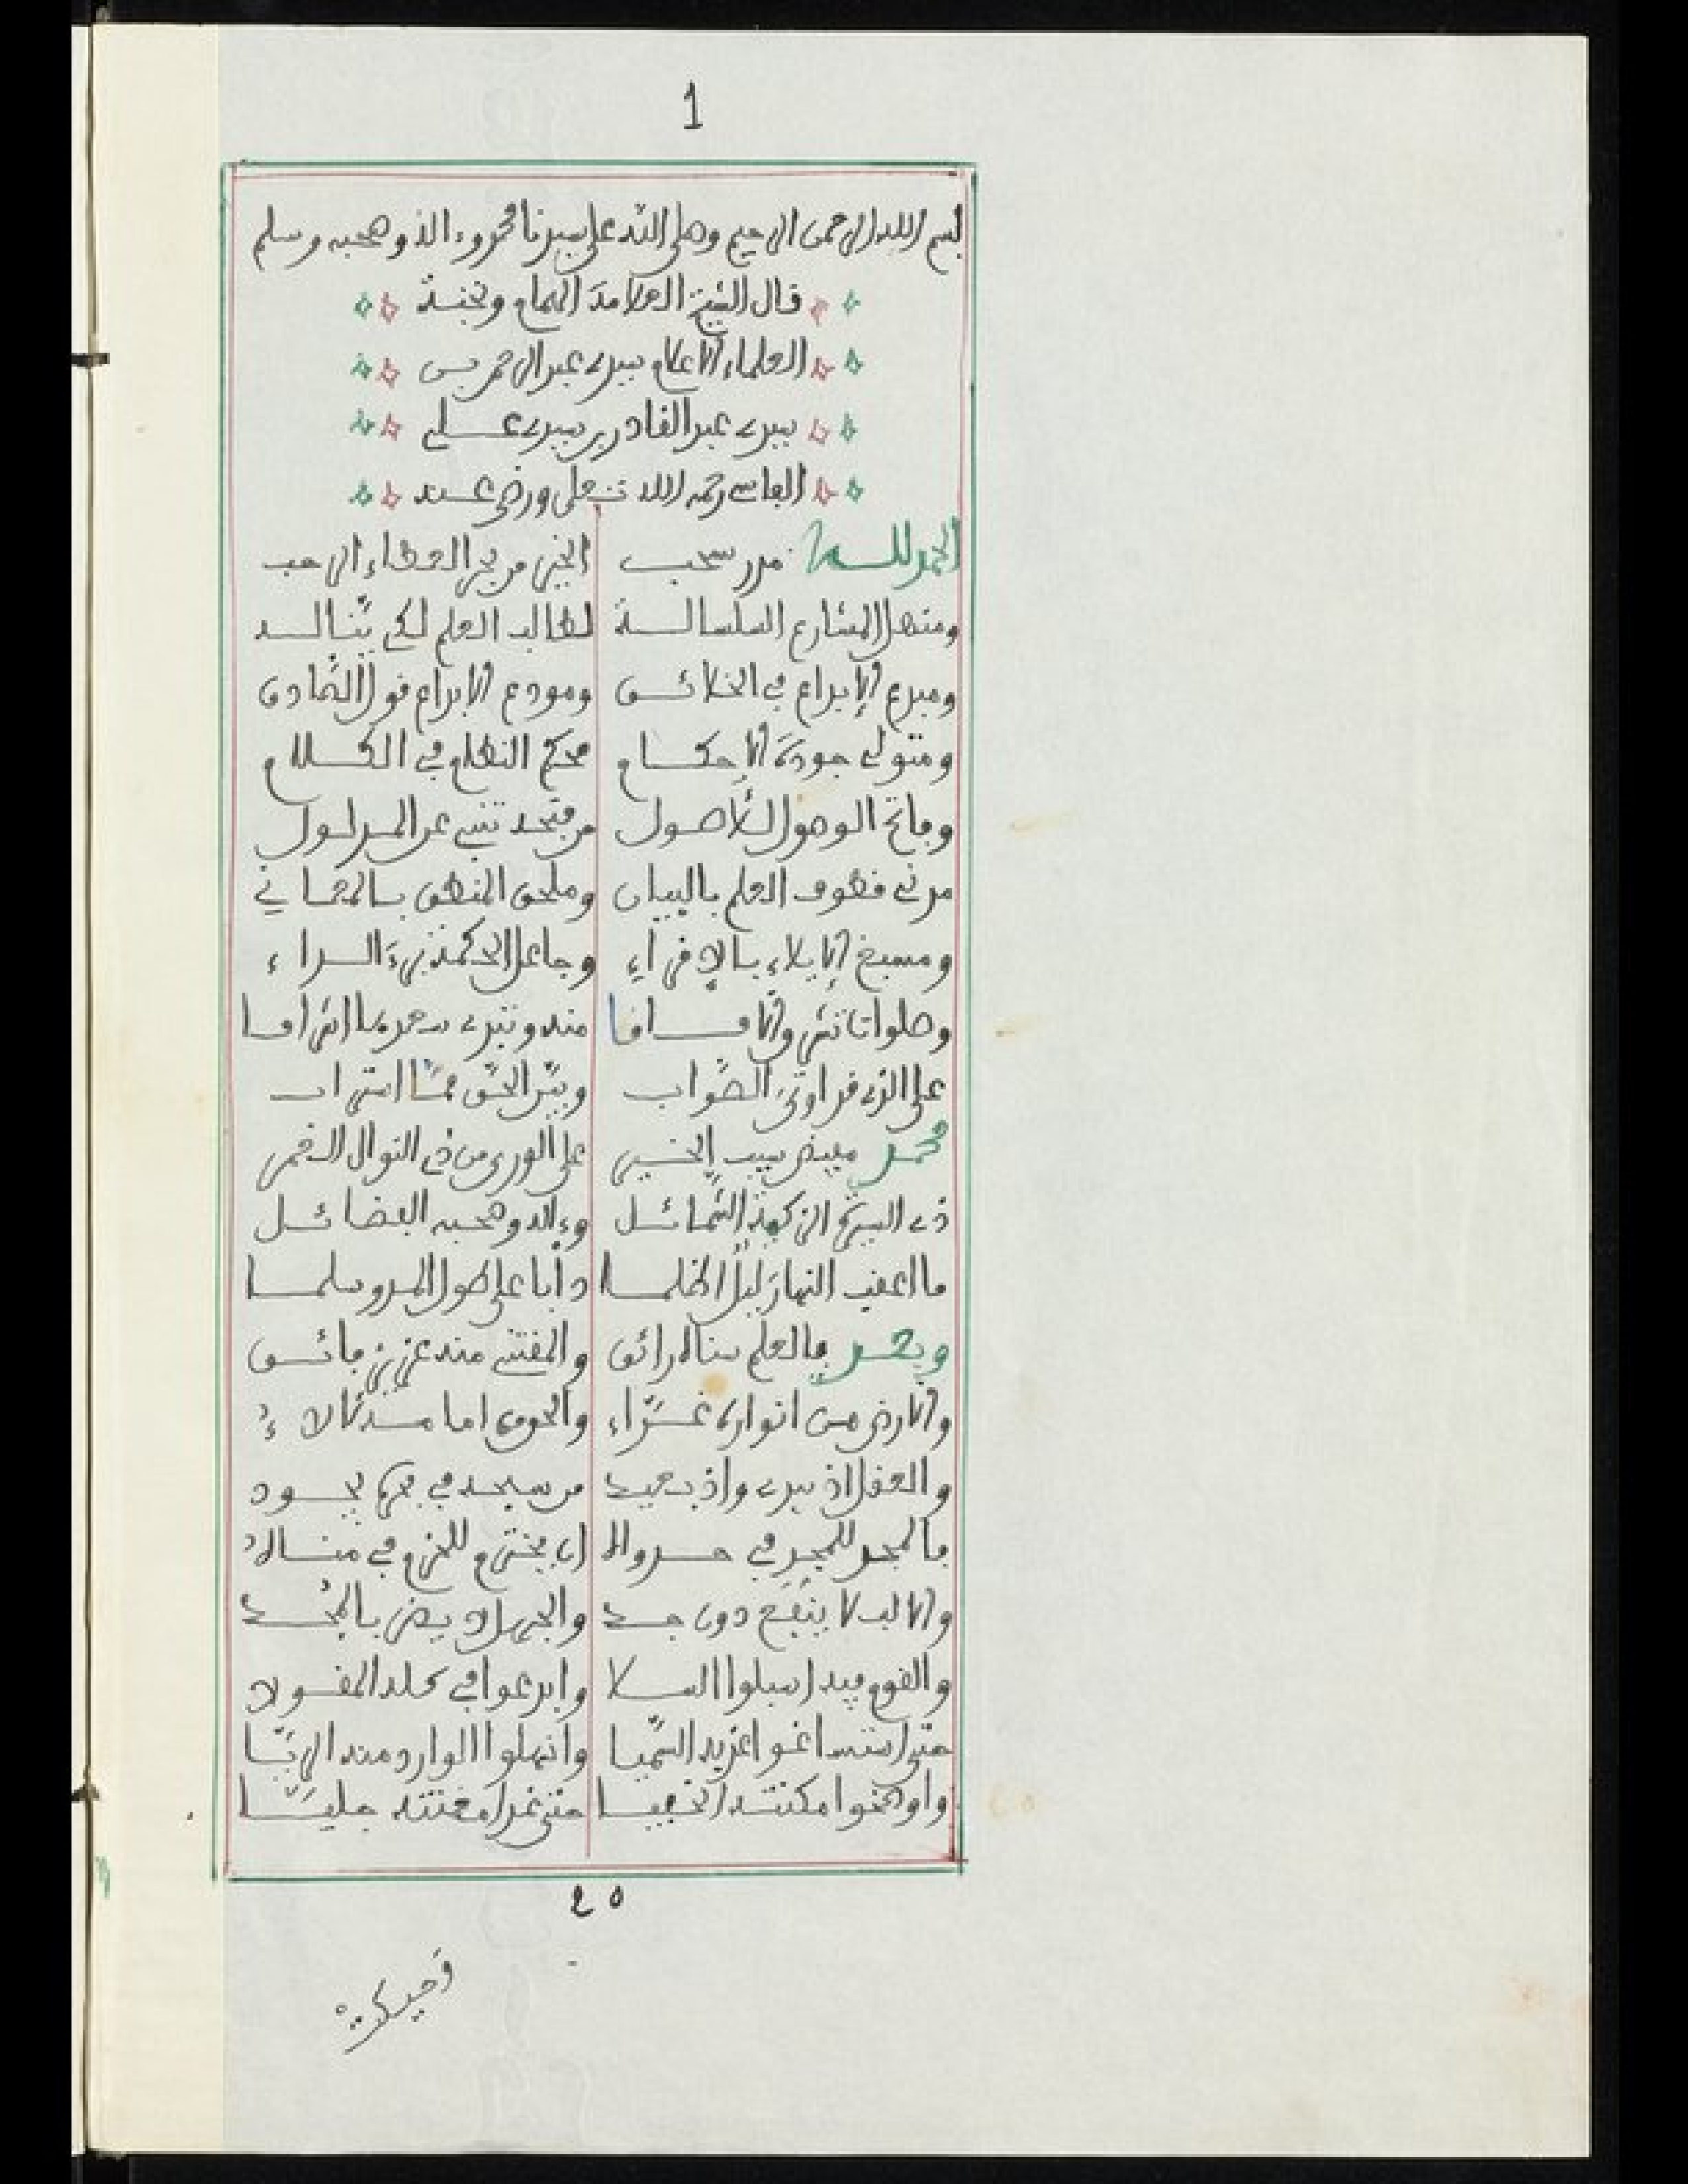 1
بسم الله الرحمن الرحيم وصلى الله على سيدنا محمد وءاله وصحبه وسلم
قال الشيخ العلامة الهمام ونخبة
العلماء الأعلام سيدي عبد الرحمن بن
سيدي عبد القادر بن سيدي علي
الفاسي رحمه الله تعلى ورضي عنه
الحمد لله مدر سحب الخير من بحر العطاء الرحب
ومنهل المشارع السلسالة لطالب العلم لكي يناله
ومبدع الإبداع في الخلائق ومودع الابداع فول الصادق
ومتولي جودة الإحكام محكم النظام في الكلام
وفاتح الوصول للأصول من فتحه تنبي عن المدلول
مدني قطوف العلم بالبيان وملحق المنطق بالمعاني
ومسبغ الإيلاء بالإقراء وجاعل الحكمة
وصلوات تترى والافا منه وتبدي
على الذي قد اوتي الصواب وبين الحق مما استراب
محمد مفيض سيب الخير على الورى من ذي النوال الغمر
ذي السيرة الزكية الشمائل وءاله وصحبه الفضائل
ما اعقب النهار ليل اظلما دأبا على طول المدى وسلما
وبعد فالعلم سناه رائق والمقتنى منه عزيز فائق
والارض من انواره غراء والجو من
والعقل إذ يبدي وإذ يعيد من سيبه في بحره يجود
فالمجد للمجد في حدواله ان يخترم للحزم في مناله
والاب لا ينفع دون جد والجهل لا يضر بالمجد
والقوم فيه اسبلوا السلا وابدعوا في المقولا
حتى استساغوا عذبه الشهيا وانهلوا الوارد منه الريا
واوضحوا مكنته الخفيا حتى غدا مغتنه جليا
20